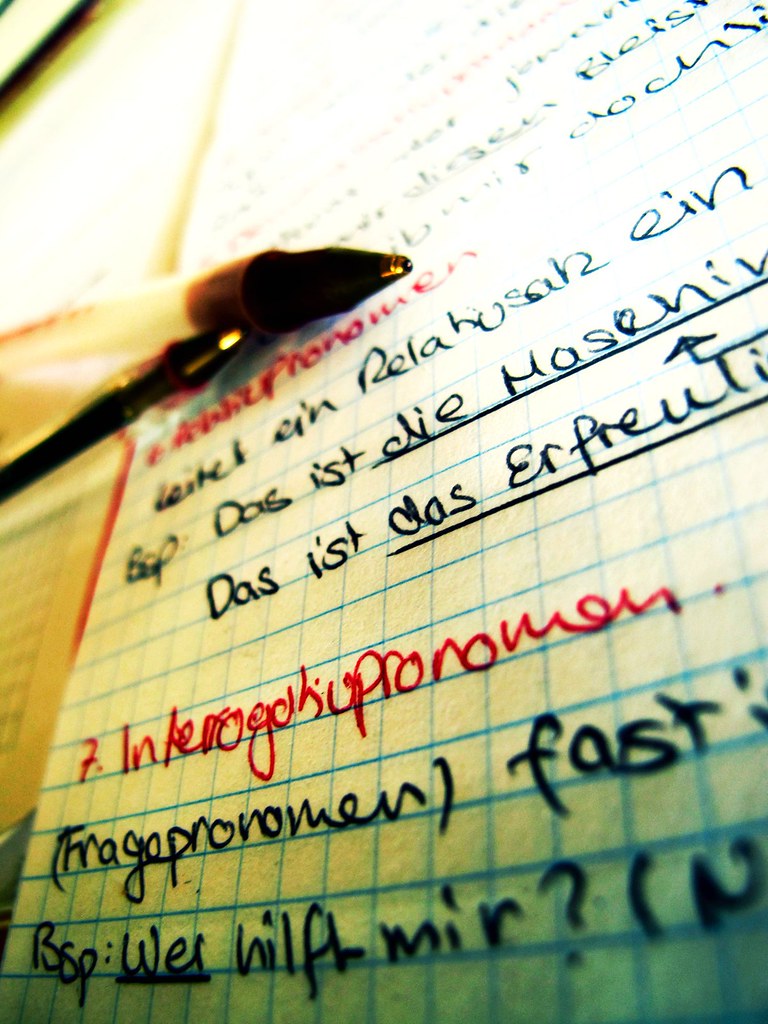 diesen Bleist
mir doch
Relativpronomen
leitet ein Relativsatz ein
Bsp: Das ist die Maschin
Das ist das Erfreuli
7. Interrogativpronomen.
(Fragepronomen) fast i
Bsp: Wer hilft mir? (N